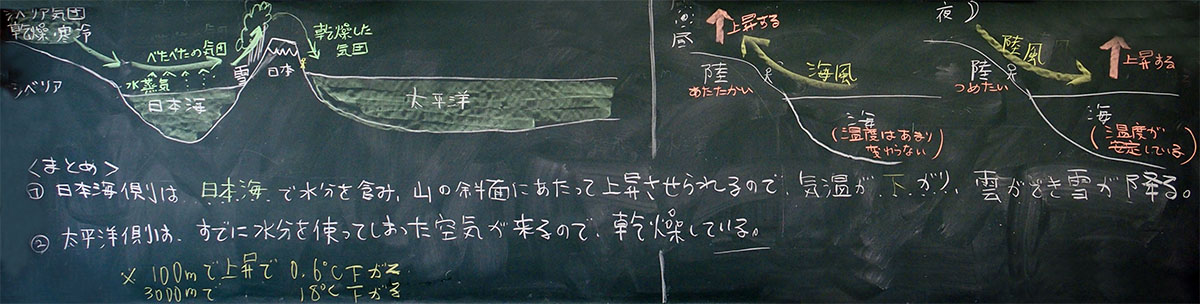 シベリア気団
乾燥・寒冷
べたべたの気団
水蒸気
雪
日本
乾燥した
気団
シベリア
日本海
太平洋
昼
上昇する
海風
陸
あたたかい
海
(温度はあまり
変わらない)
夜
陸風
上昇する
陸
つめたい
海
(温度が
安定している)
<まとめ>
① 日本海側は、日本海で水分を含み、山の斜面にあたって上昇させられるので、気温が下がり、雲ができ雪が降る。
② 太平洋側は、すでに水分を使ってしまった空気が来るので、乾燥している。
※ 100mで上昇で 0.6℃下がる
3000mで 18℃下がる